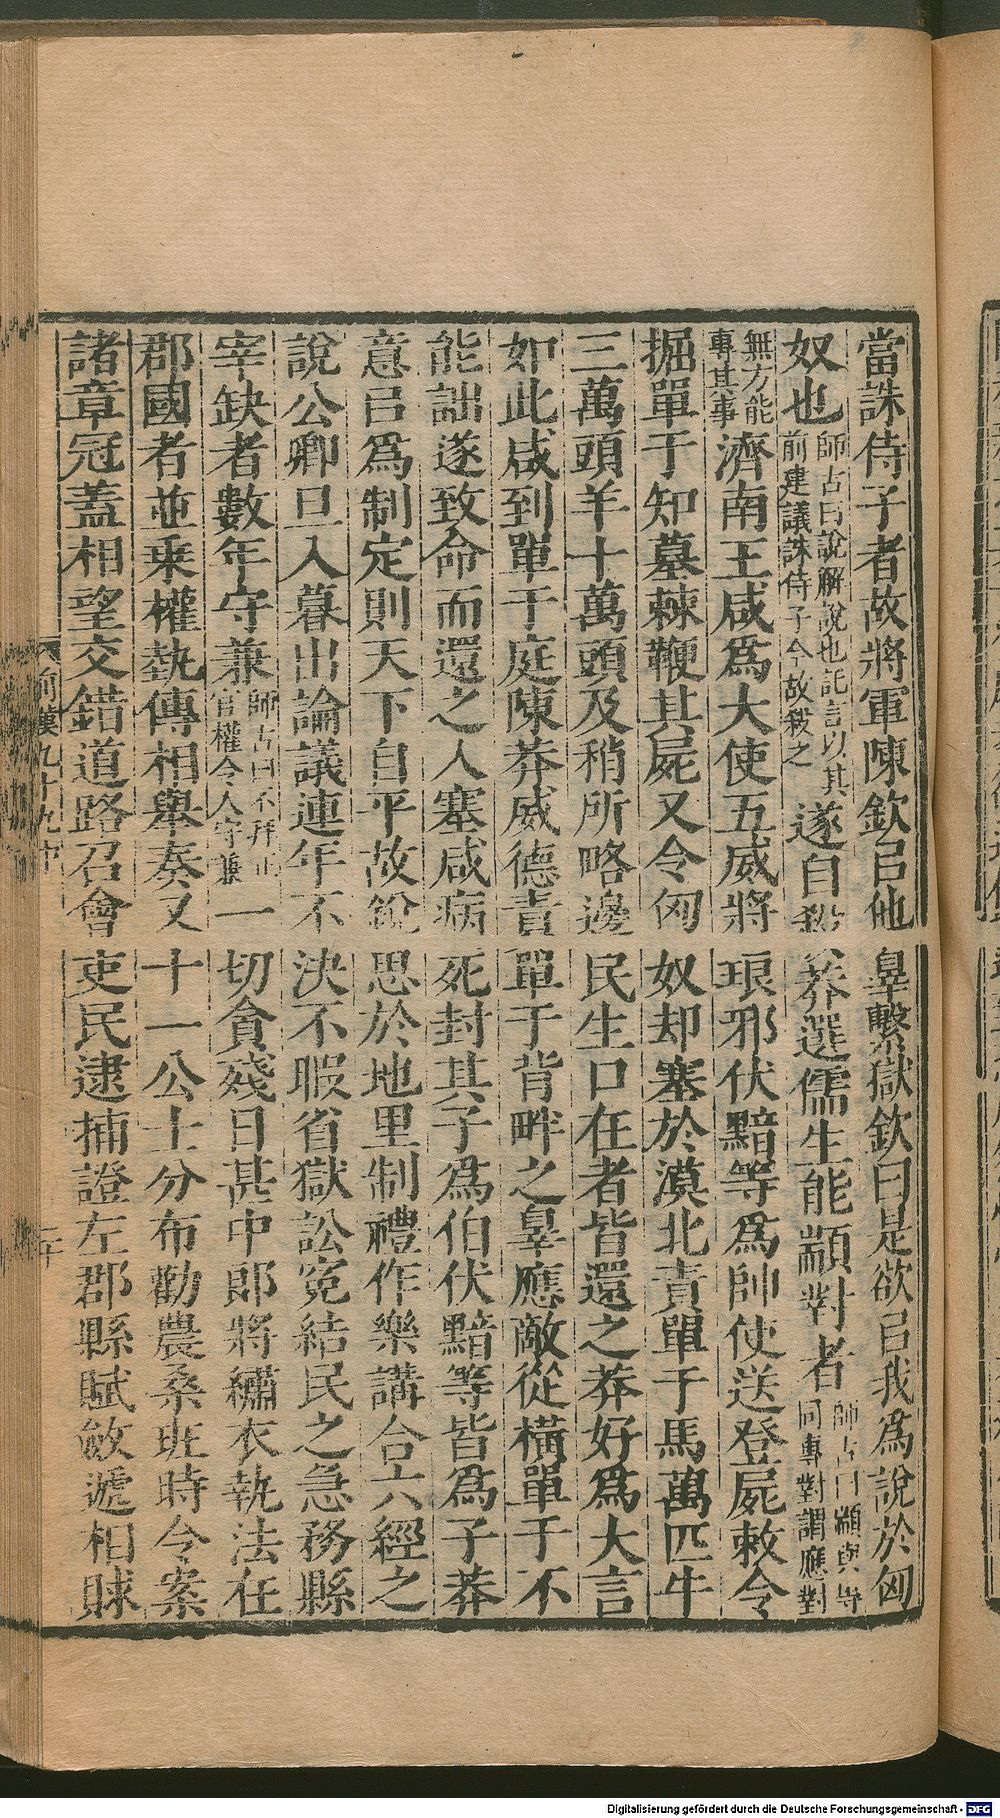 當誅侍子者故將軍陳欽㠯他辠繫獄欽曰是欲㠯我爲說於匈
奴也師古曰說解說也託言以其前建議誅侍子今故殺之遂自殺莽選儒生能顓對者師古曰顓與專同專對謂應對
無方能專其事濟南王咸爲大使五威將琅邪伏黯等爲帥使送登屍敕令
掘單于知墓棘鞭其屍又令匈奴却塞於漠北責單于馬萬匹牛
三萬頭羊十萬頭及稍所略邊民生口在者皆還之莽好爲大言
如此咸到單于庭陳莽威德責單于背畔之辠應敵從橫單于不
能詘遂致命而還之入塞咸病死封其子爲伯伏黯等皆爲子莽
意㠯爲制定則天下自平故銳思於地里制禮作樂講合六經之
說公卿旦入暮出論議連年不決不暇省獄訟冤結民之急務縣
宰缺者數年守兼師古曰不拜正官權令人守兼一切貪殘日甚中郎將繡衣執法在
郡國者並乘權埶傳相舉奏又十一公士分布勸農桑班時令案
諸章冠蓋相望交錯道路召會吏民逮捕證左郡縣賦斂遞相賕
前漢九十九中
二十
Digitalisierung gefördert durch die Deutsche Forschungsgemeinschaft - DFG